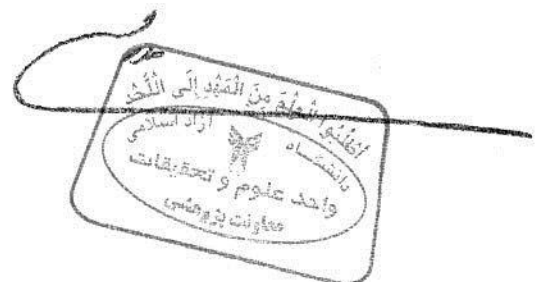 اطلبوا العلم من المهد إلى اللحد
دانشگاه آزاد اسلامی
واحد علوم و تحقیقات
معاونت پژوهشی